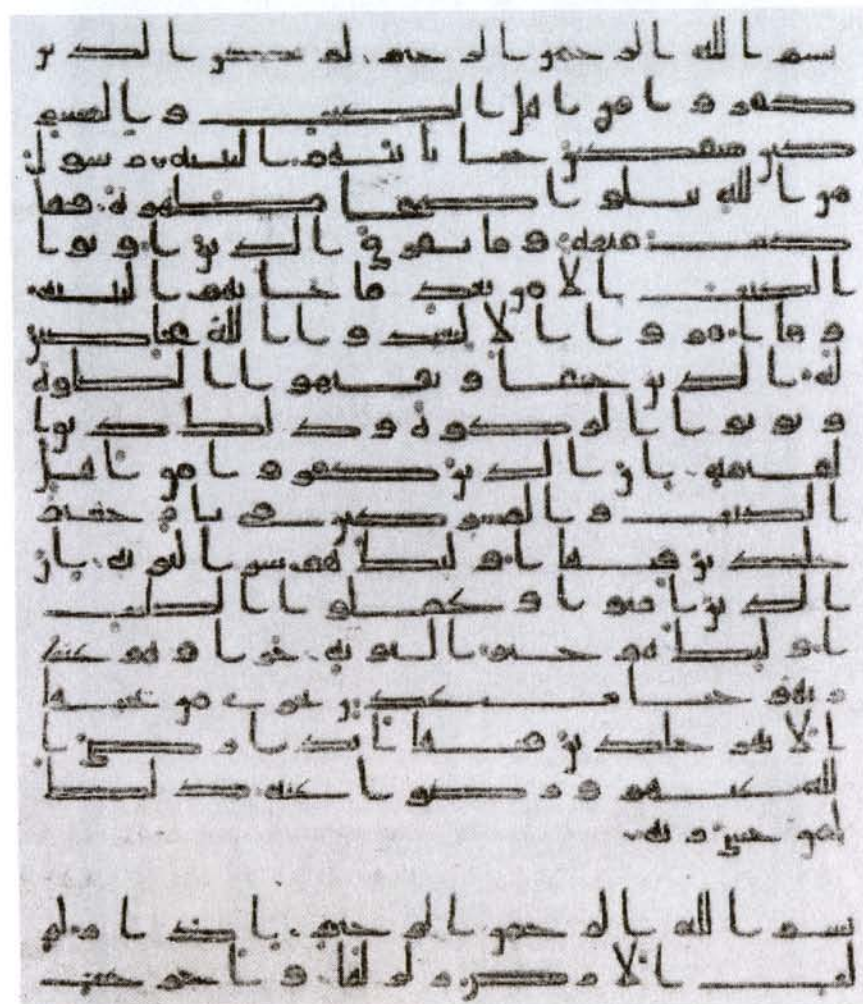 بسم الله الرحمن الرحيم لم يكن الذين
كفروا من اهل الكتب والمشر
كين منفكين حتى تاتيهم البينة رسول
من الله يتلوا صحفا مطهرة فيها
كتب قيمة وما تفرق الذين اوتوا
الكتب الا من بعد ما جاتهم البينة
وما امروا الا ليعبدوا الله مخلصين
له الدين حنفا ويقيموا الصلوة
ويوتوا الزكوة وذلك دين ا
لقيمة ان الذين كفروا من اهل
الكتب والمشركين في نار جهنم
خلدين فيها اوليك هم شر البرية ان
الذين امنوا وعملوا الصلحت
اوليك هم خير البرية جزاوهم عند
ربهم جنت عدن تجري من تحتها
الانهر خلدين فيها ابدا رضي ا
لله عنهم ورضوا عنه ذلك
لمن خشي ربه
بسم الله الرحمن الرحيم اذا زلز
لت الارض زلزلها واخرجت